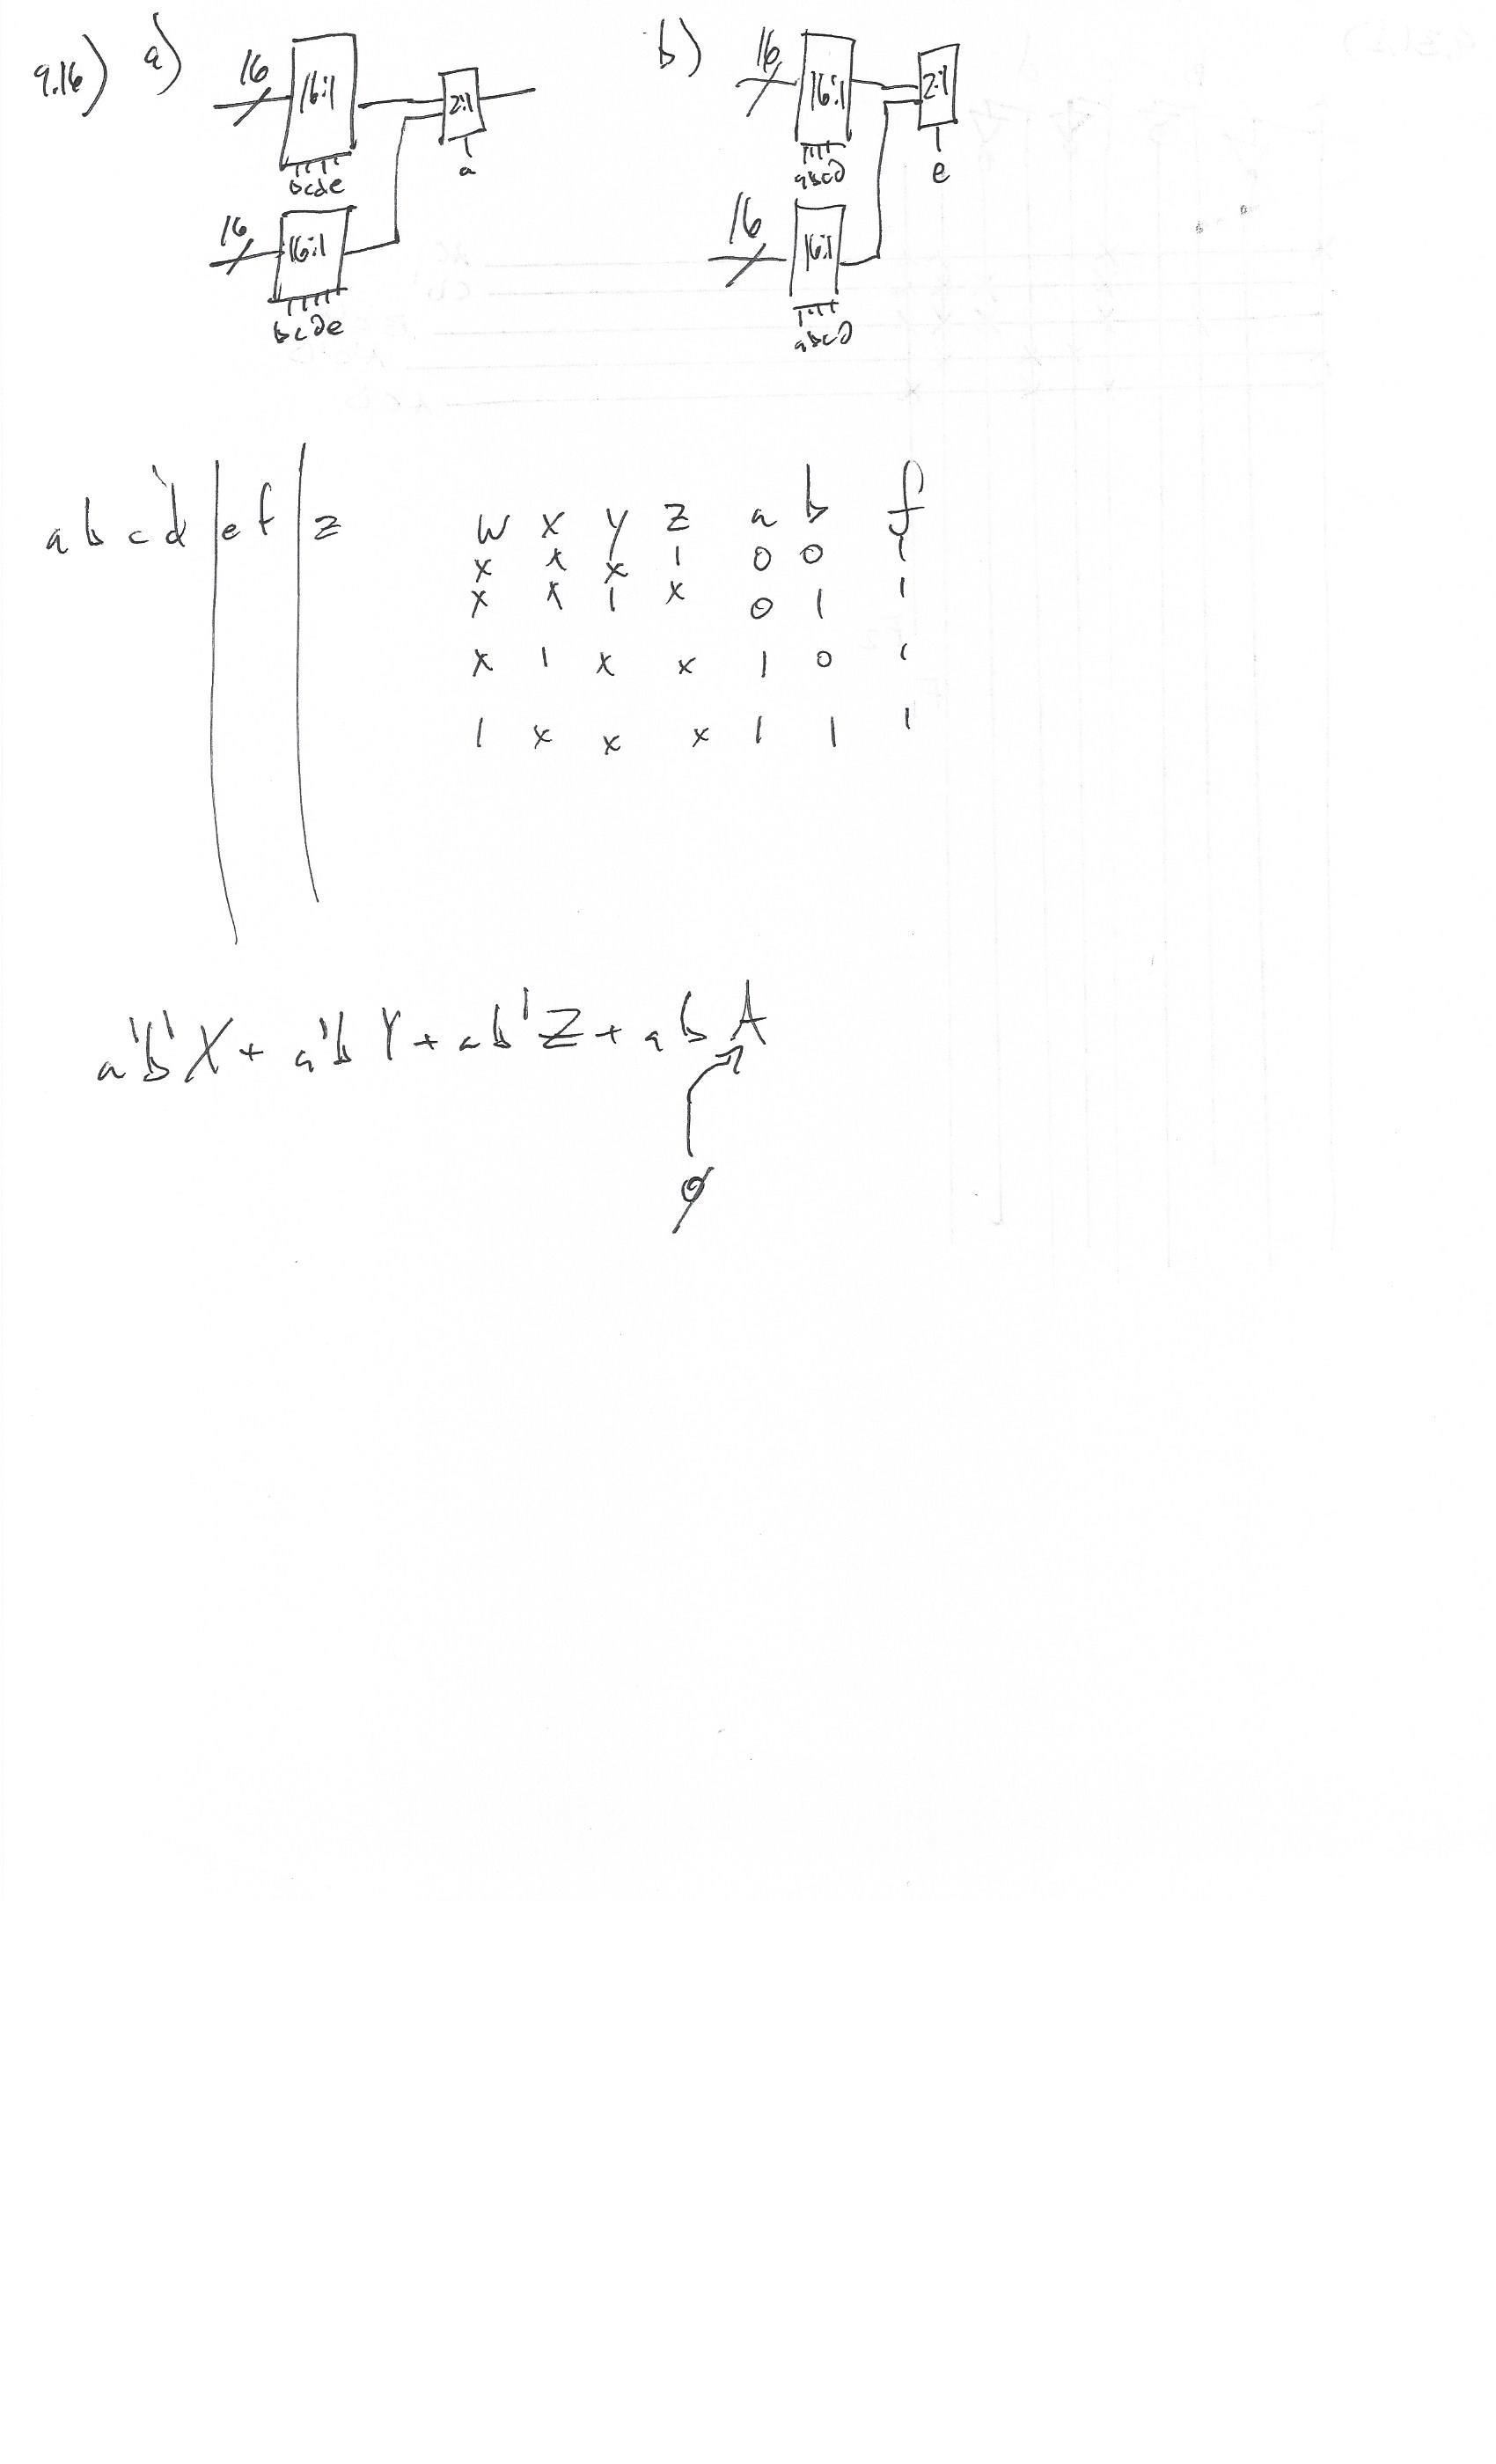 9.16) a)
16 16:1 2:1
bcde a
16 16:1
bcde
b)
16 16:1 2:1
abcd e
16 16:1
abcd
a b c d | e f | z
w x y z a b f
x x x 1 0 0 1
x x 1 x 0 1 1
x 1 x x 1 0 1
1 x x x 1 1 1
a'b'X + a'bY + ab'Z + abA
0